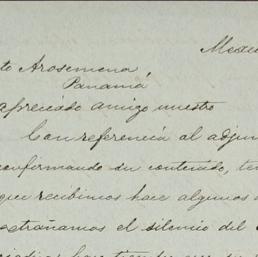 Mexic
to Arosemena
Panamá
apreciado amigo nuestro
Con referencia al adjun
confirmando su contenido, ten
que recibimos hace algunos
extrañamos el silencio del